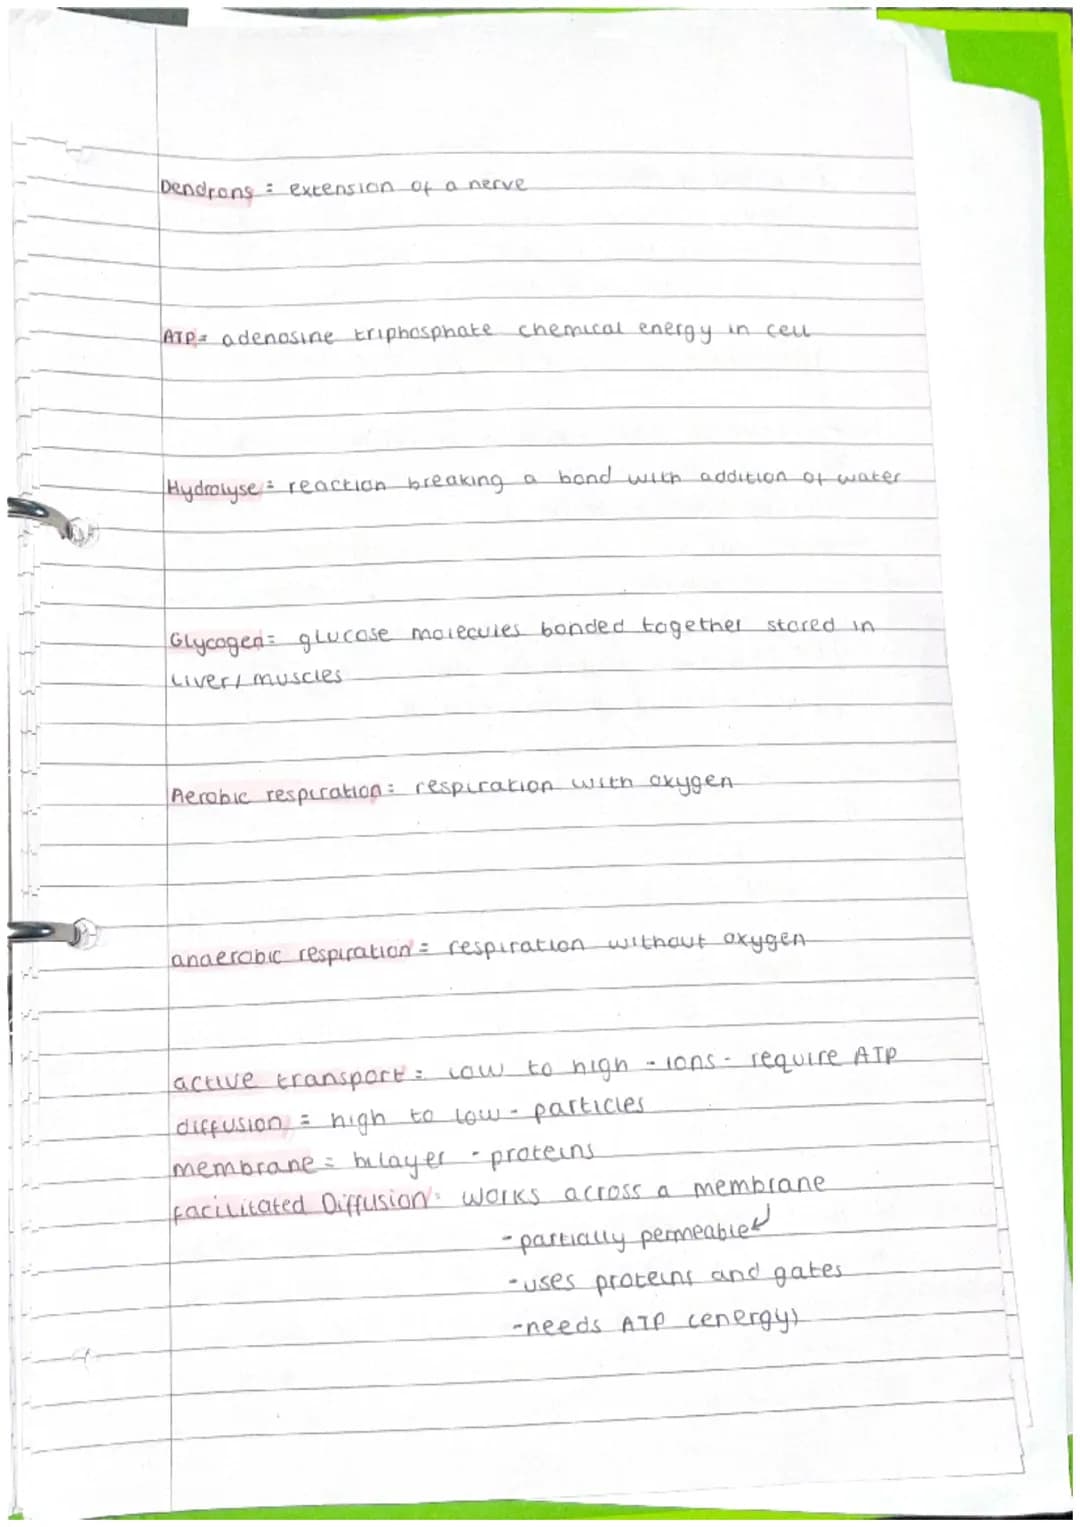 Dendrons = extension of a nerve
ATP = adenosine triphosphate chemical energy in cell
Hydrolyse = reaction breaking a bond with addition of water
Glycogen = glucose molecules bonded together stored in
Liver / muscles
Aerobic respiration = respiration with oxygen
anaerobic respiration = respiration without oxygen
active transport = low to high - ions - require ATP
diffusion = high to low - particles
membrane = bilayer - proteins
Facilitated Diffusion = works across a membrane
- partially permeable
- uses proteins and gates
- needs ATP (energy)